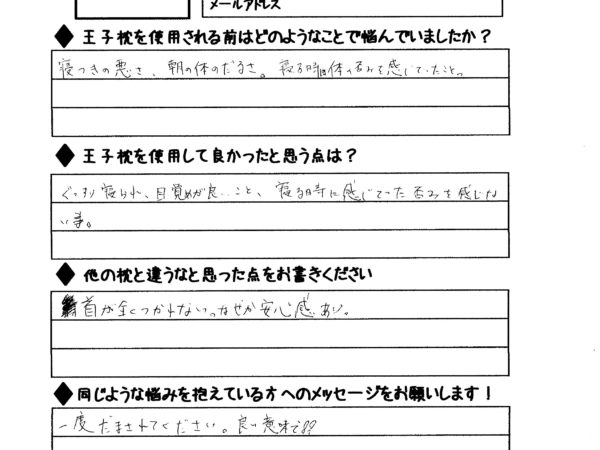 メールアドレス
◆ 王子枕を使用される前はどのようなことで悩んでいましたか？
寝つきの悪さ、朝の体のだるさ。寝る時は体の歪みを感じていたこと。
◆ 王子枕を使用して良かったと思う点は？
ぐっすり寝られ、目覚めが良いこと、寝る時に感じてった歪みを感じな
い事。
◆ 他の枕と違うなと思った点をお書きください
首が全くつかれない。なぜか安心感あり。
◆ 同じような悩みを抱えている方へのメッセージをお願いします！
一度だまされてください。良い意味で!?